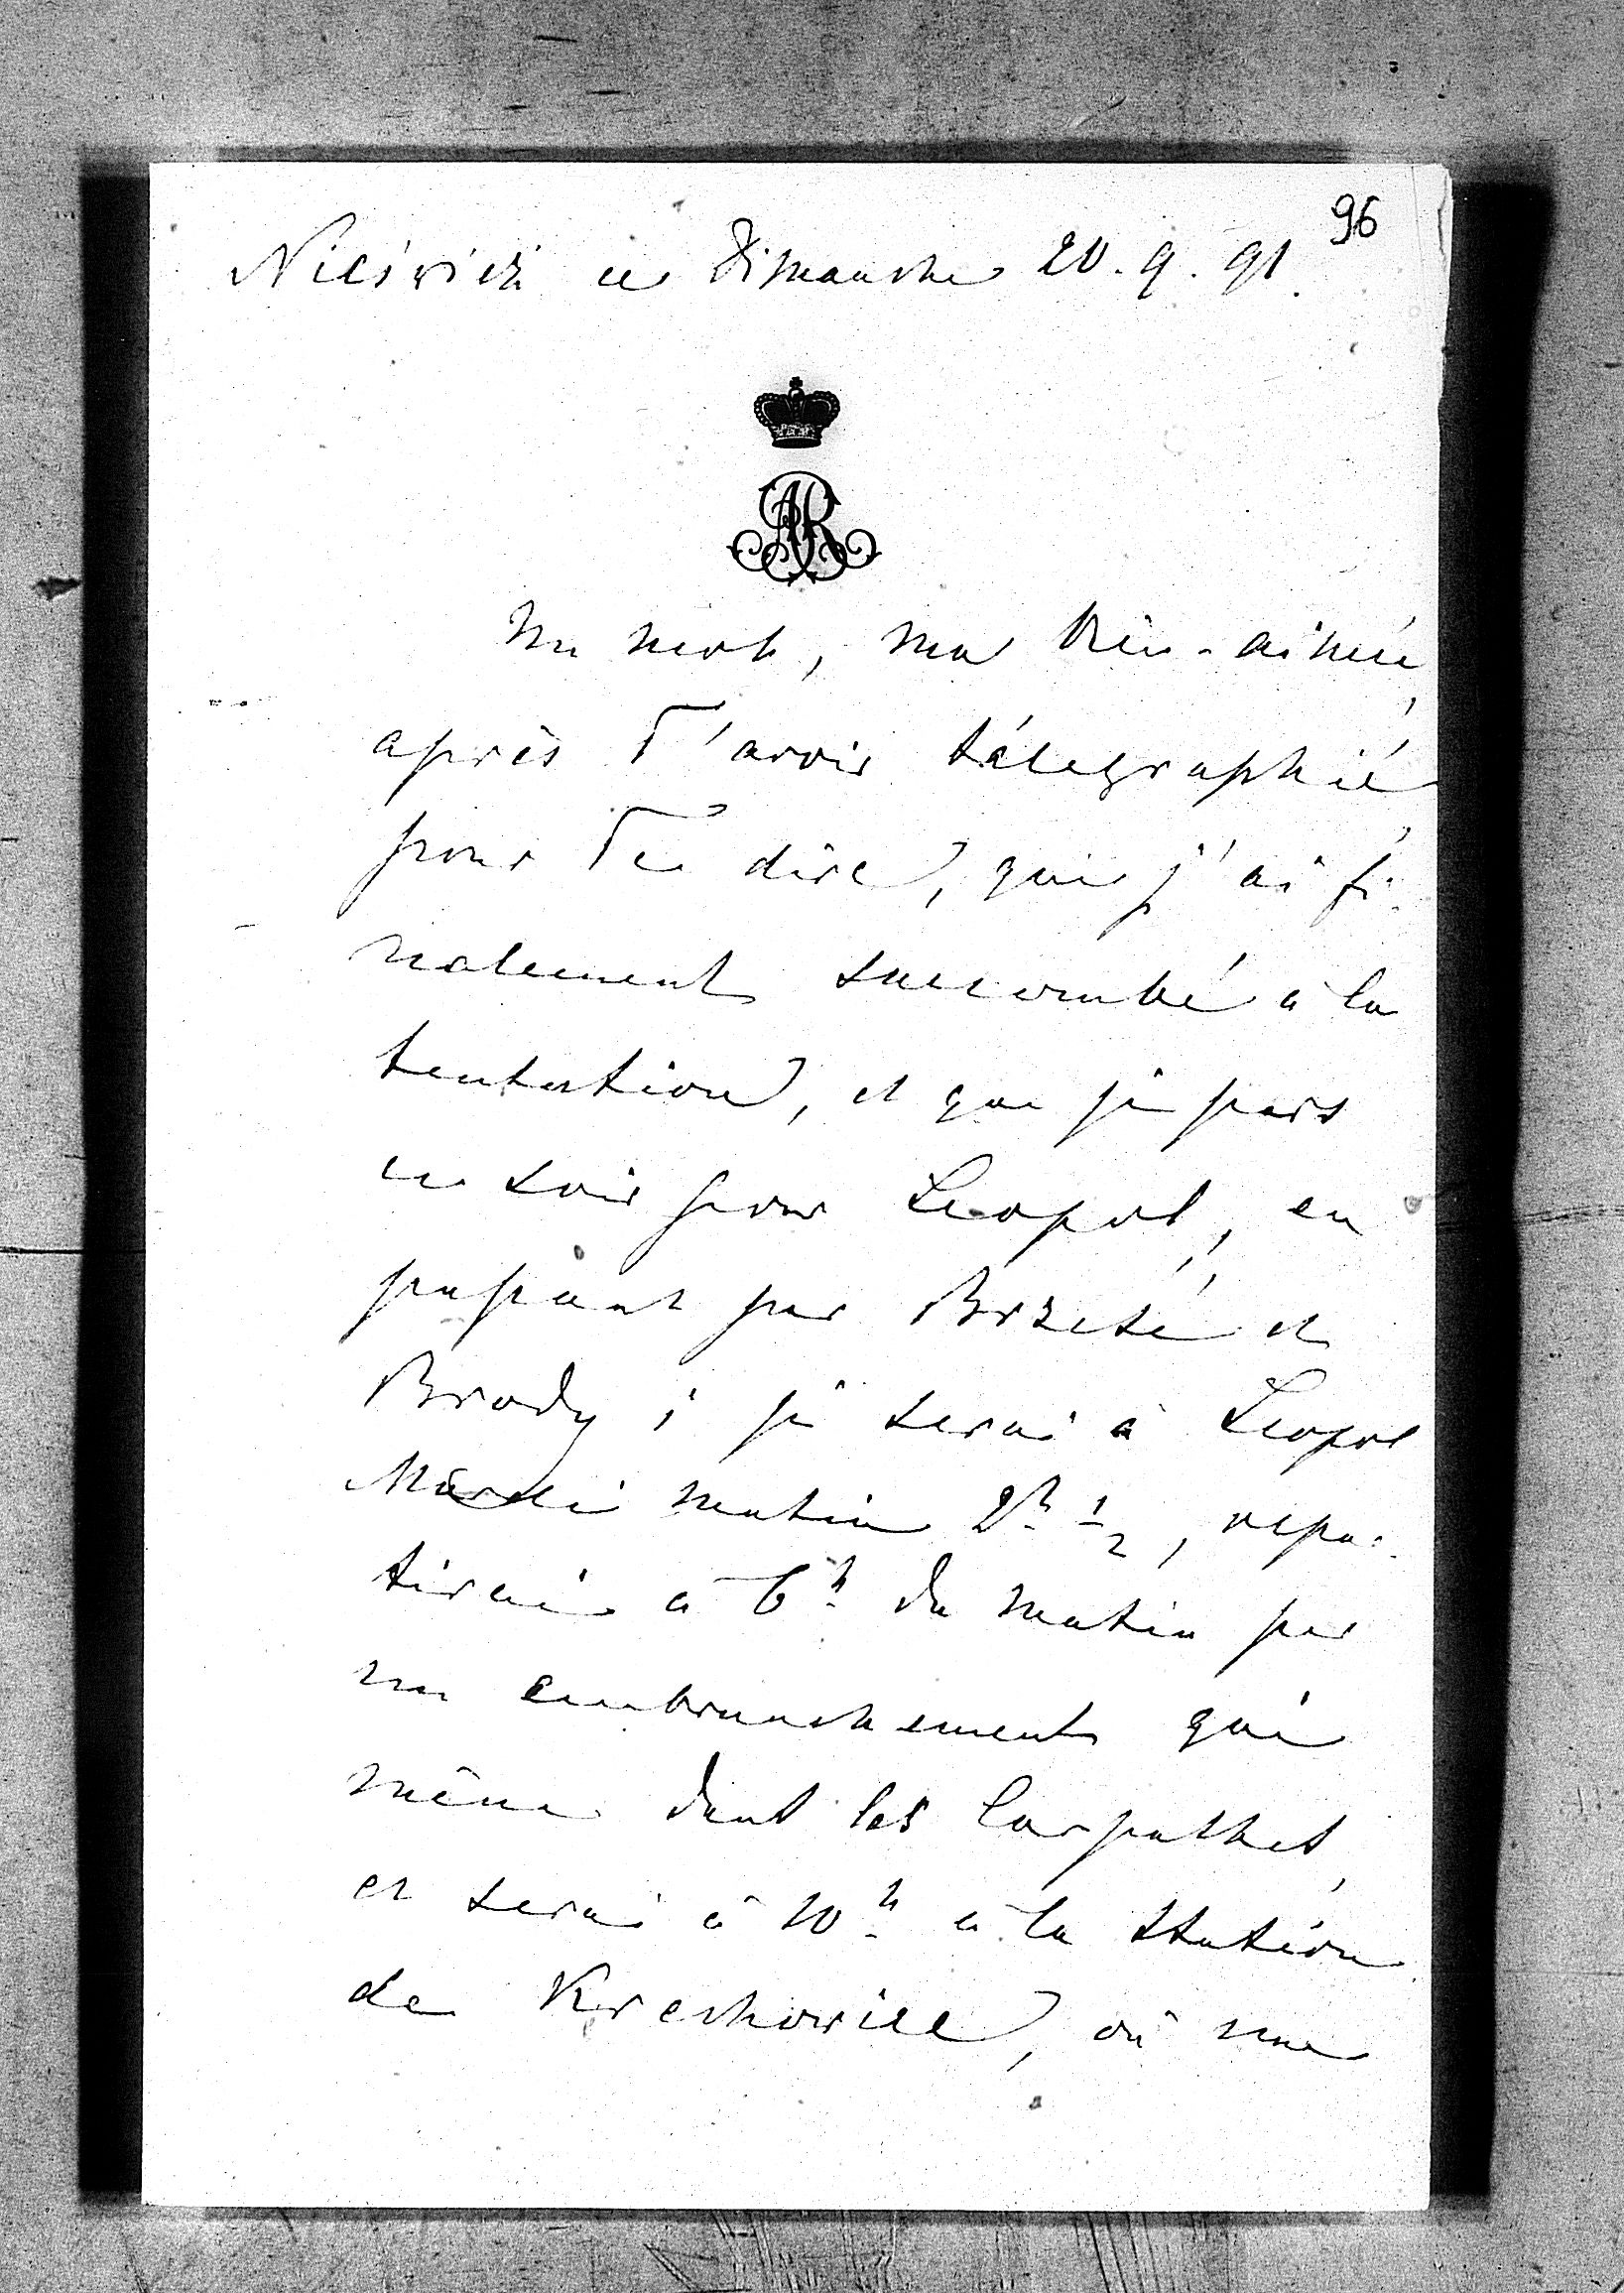 96
Nieśwież ce Dimanche 20.9.91.
AR
Un mot, ma bien-aimée,
après T'avoir télegraphié,
pour Te dire, que j'ai fi-
nalement succombé à la
tentation, et que je pars
ce soir pour Leopol, en
passant par Brześć et
Brody; je serai à Leopol
Mardi matin 2h 1/2, repar-
tirai à 6h du matin par
un embranchement qui
mène dans les Carpathes,
et serai à 10h à la station
de Krechowice, où une